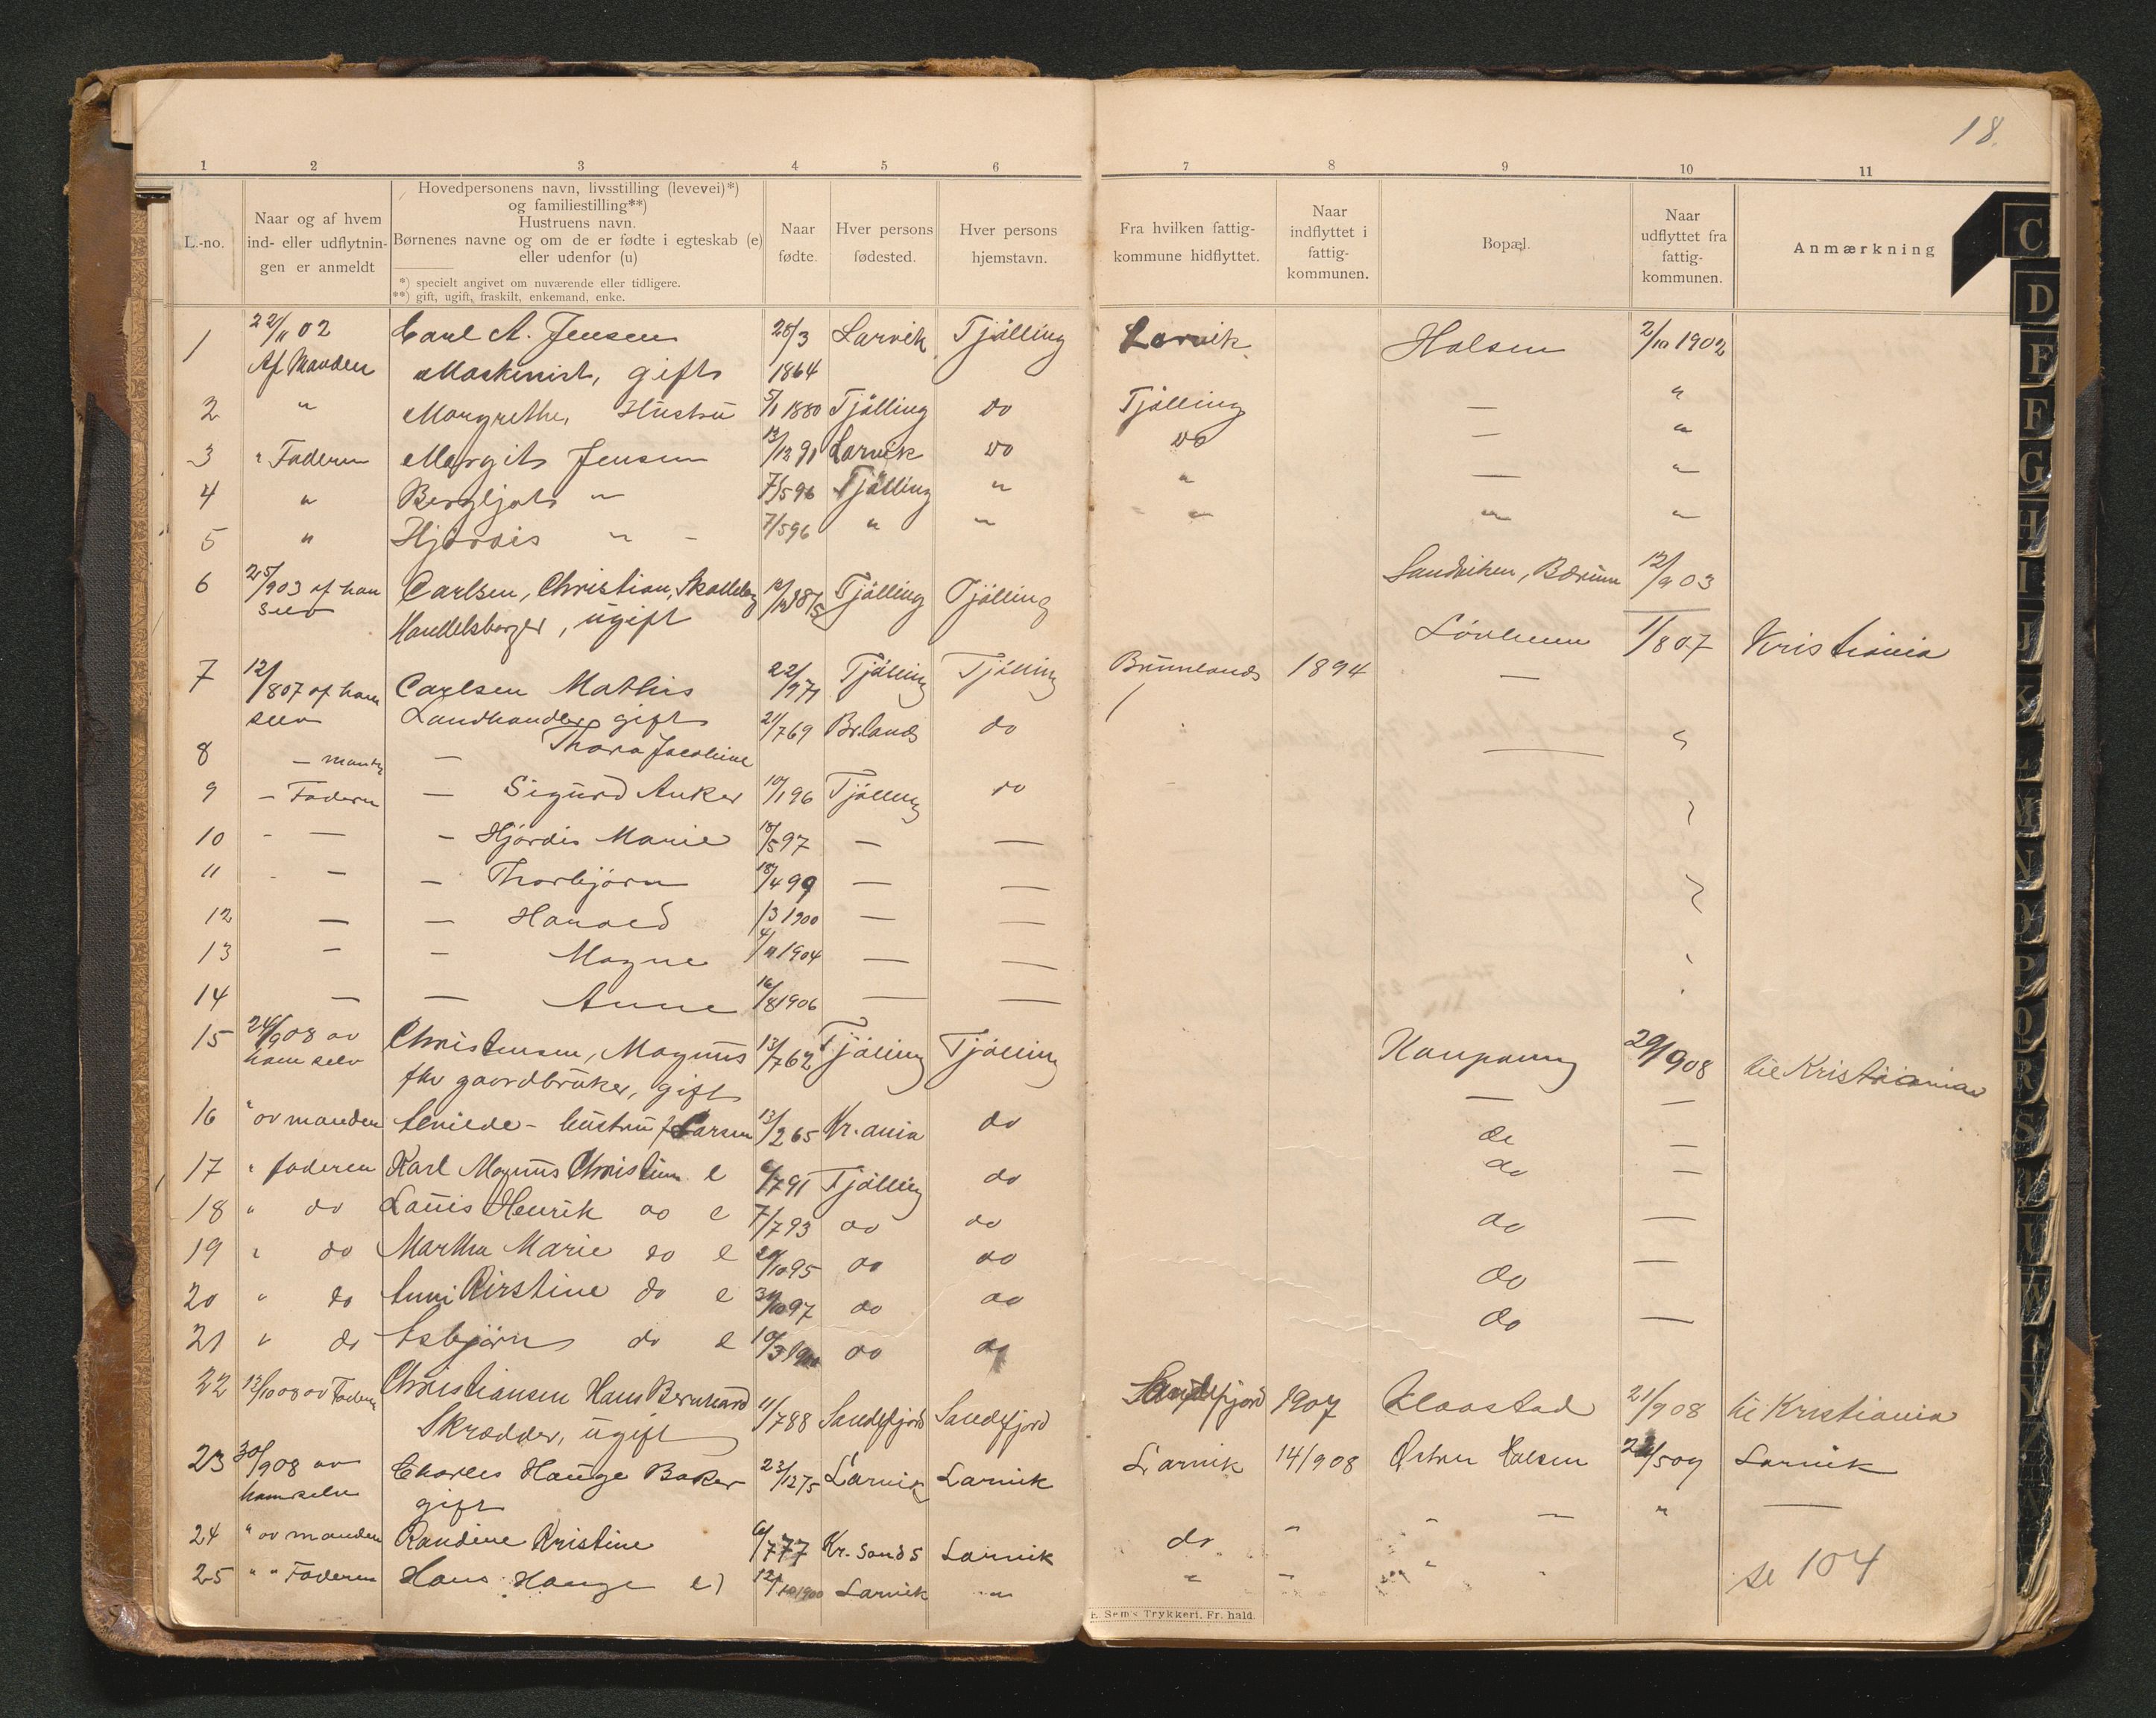 18.
1 2 3 4 5 6 7 8 9 10 11
L.-no.
Naar og af hvem
ind- eller udflytnin-
gen er anmeldt
Hovedpersonens navn, livsstilling (levevei)*)
og familiestilling**)
Hustruens navn.
Børnenes navne og om de er fødte i egteskab (e)
eller udenfor (u)
*) specielt angivet om nuværende eller tidligere.
**) gift, ugift, fraskilt, enkemand, enke.
Naar
fødte.
Hver persons
fødested.
Hver persons
hjemstavn.
Fra hvilken fattig-
kommune hidflyttet.
Naar
indflyttet i
fattig-
kommunen.
Bopæl.
Naar
udflyttet fra
fattig-
kommunen.
Anmærkning
1 22/11 02 Carl A. Jensen 28/3 Larvik Tjølling Larvik Halsen 2/10 1902
Af Manden Maskinist, gift 1864
2 " Margrethe, Hustru 5/1 1880 Tjølling do Tjølling — "
3 " Faderen Margit Jensen 13/12 91 Larvik do do — "
4 " Bergljot " 7/5 96 Tjølling " " — "
5 " Hjørdis " - 7/5 96 " " " " "
6 25/9 03 af ham Carlsen, Christian, Skalleberg 12/12 1875 Tjølling Tjølling Sandviken, Bærum 12/9 03
selv Handelsborger, ugift
7 12/8 07 af ham Carlsen Mathis 22/9 71 Tjølling Tjølling Brunlanes 1894 Løvheim 1/8 07 Kristiania
selv Landhandler gift
8 — manden — Thora Jacobine 21/7 69 Br.lanes do — "
9 — Faderen — Sigurd Anker 10/1 96 Tjølling do
10 - — - Hjørdis Marie 18/5 97 — —
11 - — — Thorbjørn 18/4 99 — —
12 — — Harald /3 1900 — —
13 — — Magne 4/11 1904 — —
14 — — Anne 16/8 1906 — —
15 24/9 08 av Christensen, Magnus 13/7 62 Tjølling Tjølling Kaupang 29/9 08 til Kristiania
ham selv fhv gaardbruker, gift
16 " av manden hustru f. Larsen 13/2 65 Kr.ania do — —
17 " faderen Karl Magnus Christian e 6/7 91 Tjølling do do —
18 " do Louis Henrik do e 7/7 93 do do do —
19 " do Martha Marie do e 20/10 95 do do do —
20 " do Anni Kirstine do e 30/10 97 do do do —
21 " do Asbjørn do e 10/3 1900 do do do —
22 13/10 08 av Faderen Christiansen Hans Bernhard 11/7 88 Sandefjord Sandefjord Sandefjord 1907 Klaastad 21/9 08 til Kristiania
Skrædder, ugift
23 30/9 08 av Charles Hauge Baker 23/12 75 Larvik Larvik Larvik 14/9 08 Østre Halsen 22/5 09 Larvik
ham selv gift
24 " av manden Randine Kristine 6/7 77 Kr.sand S Larvik do - - — " —
25 " " Faderen Hans Hauge e) 12/10 1900 Larvik " " - "
se 104
E. Sem's Trykkeri. Fr. hald.
C
D
E
F
G
H
I
J
K
L
M
N
O
P
Q
R
S
T
U
W
Y
Z